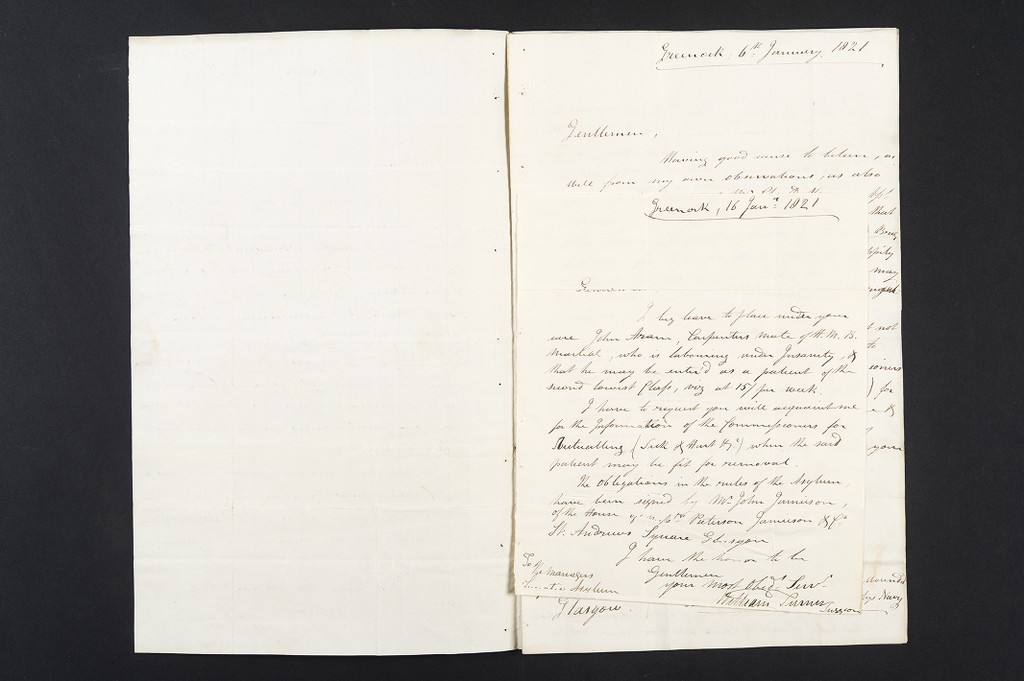 Greenock, 6th January. 1821
Gentlemen,
Having good cause to believe, as
well from my own observations, as also
Greenock, 16 Janry 1821
Gentlemen
I beg leave to place under your
care John, Carpenters mate of H.M.B.
Martial, who is labouring under Insanity, &
that he may be enter'd as a patient of the
second lowest Class, viz at 15/ per week.
I have to request you will acquaint me
for the Information of the Commissioners for
Victualling (Sick & Hurt &c) when the said
patient may be fit for removal.
The Obligations in the rules of the Asylum
have been signed by Mr John Jamieson,
of the House of Paterson Jamieson & Co
St. Andrews Square Glasgow
I have the honor to be
Gentlemen
your most Obedt Servt
William Turner
Surgeon
To the Managers
Lunatic Asylum
Glasgow.
that
may
not
to
for
&
your
Navy